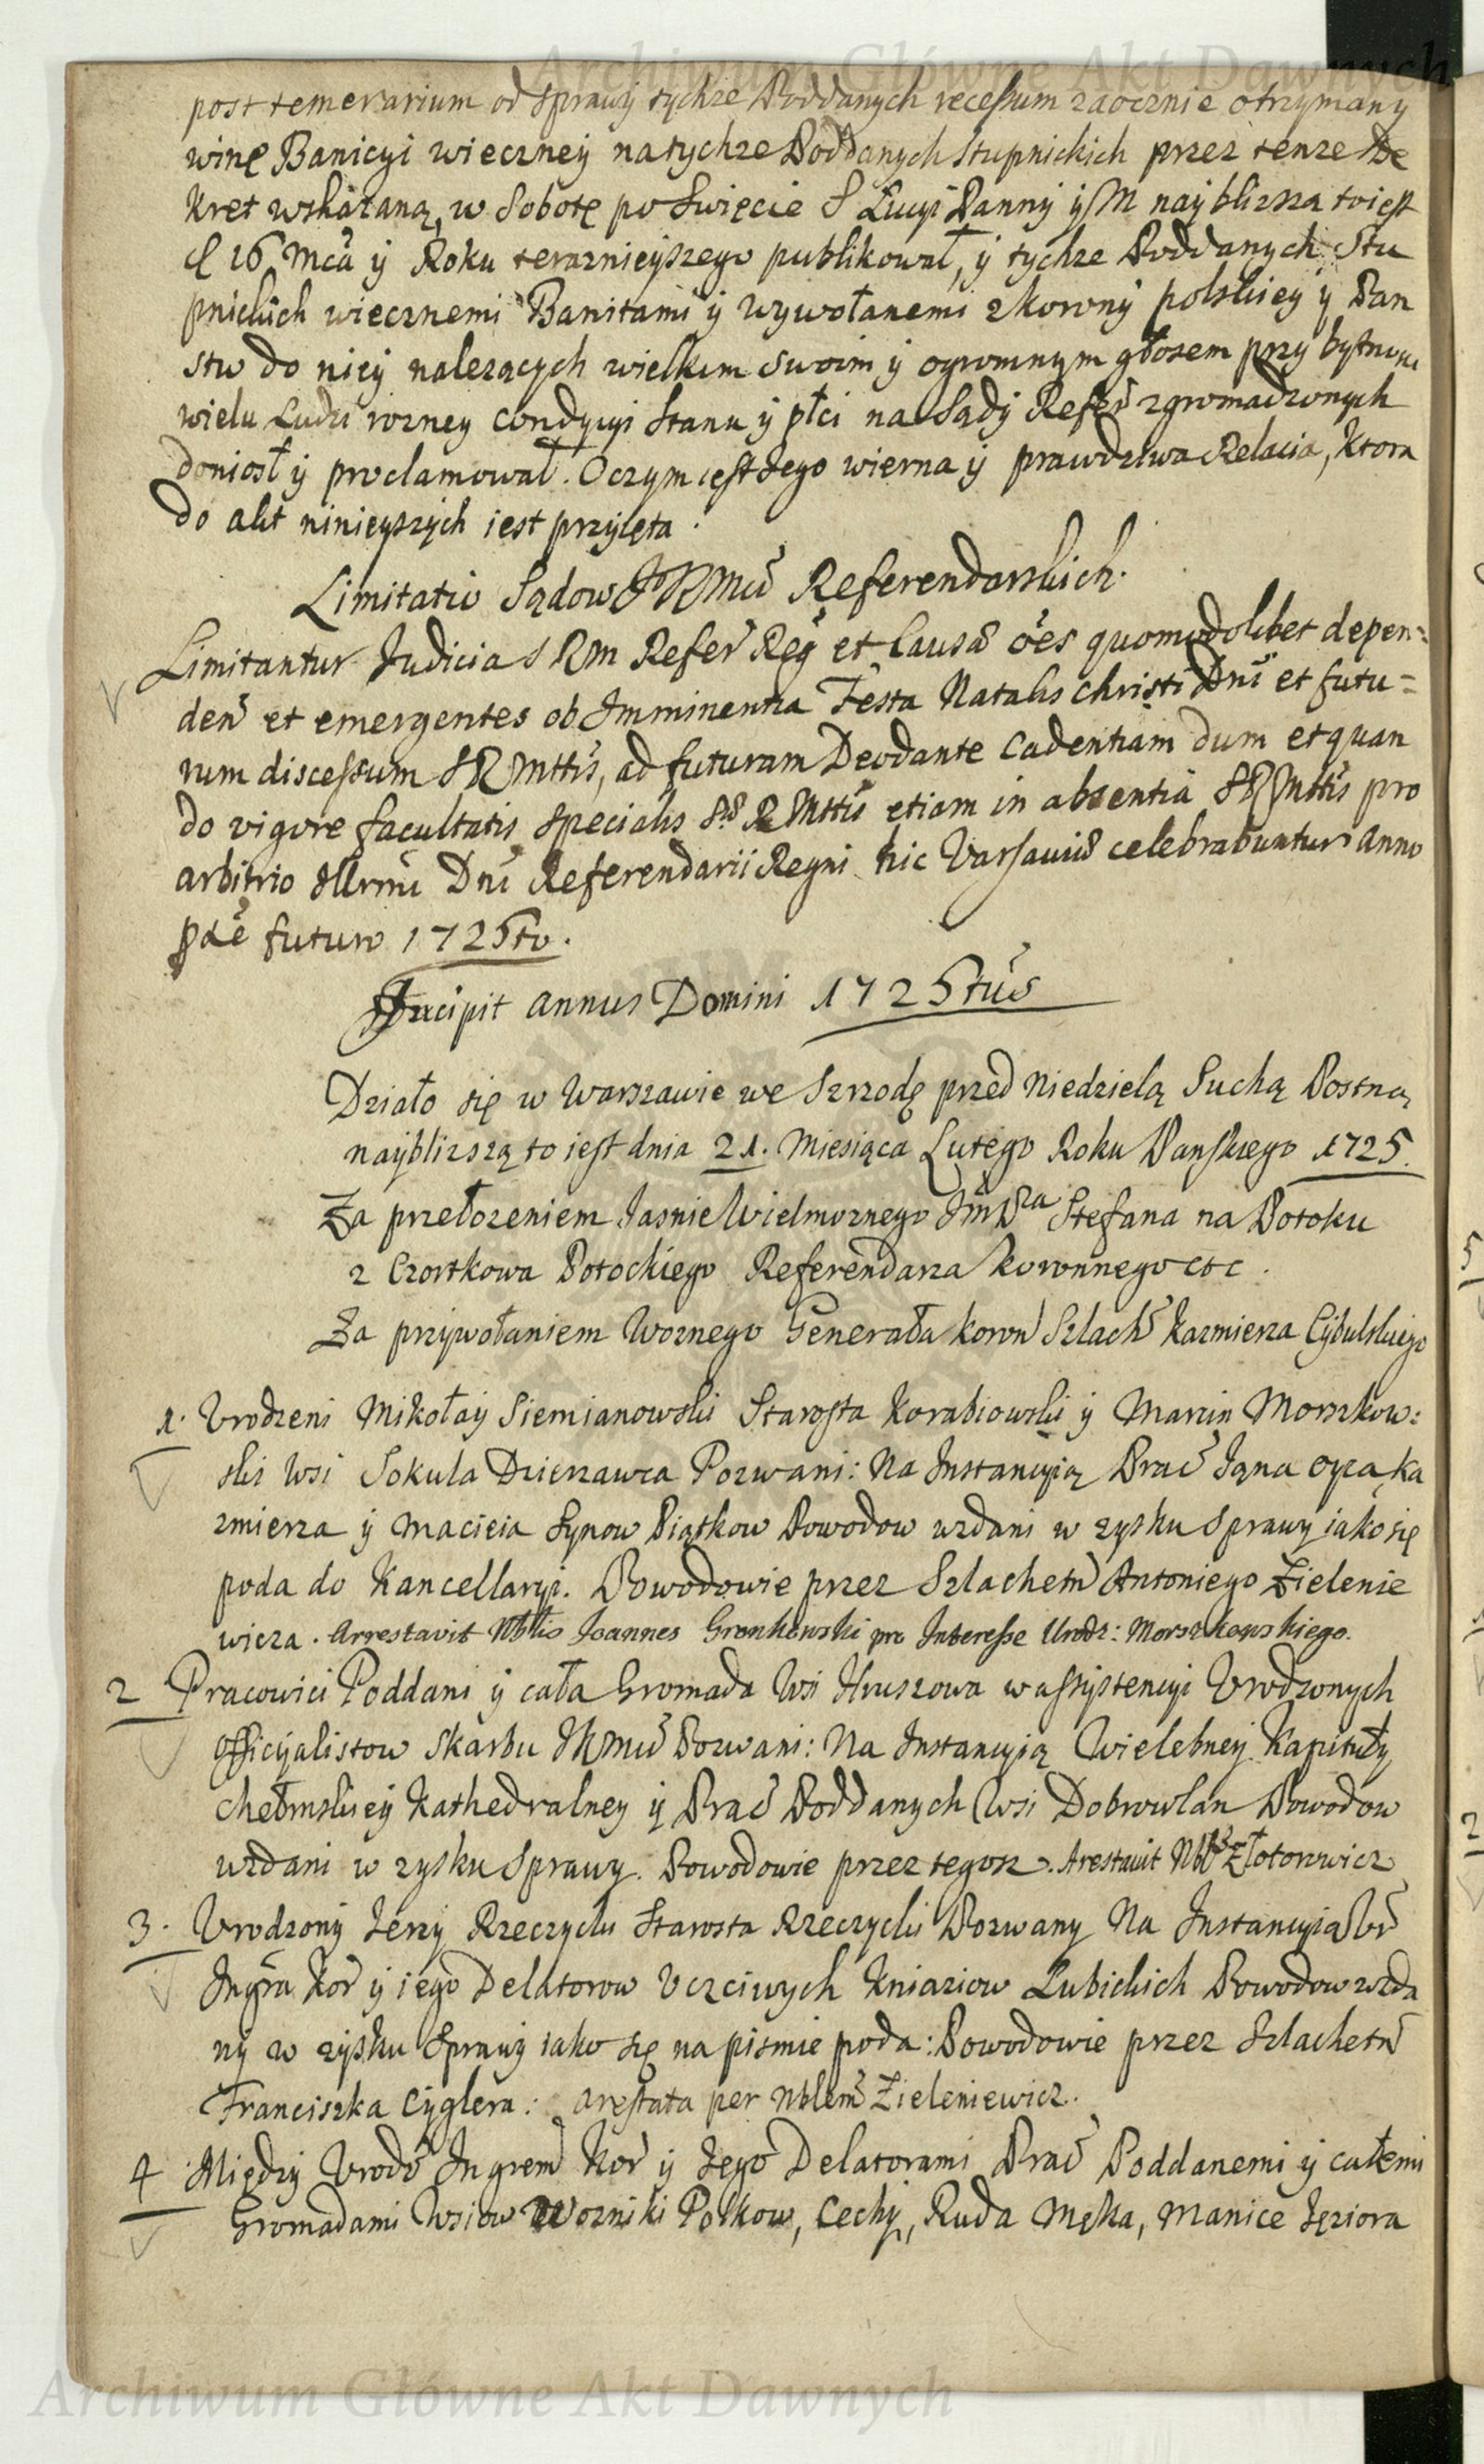 Archiwum Główne Akt Dawnych
post temerarium od sprawy tychze Poddanych recessum zaocznie otrzymany
winę Banicyi wieczney na tychze Poddanych Stupnickich przez tenze De
kret wskazaną, w Sobotę po Swięcie S Lucyi Panny y M nayblizszą to iest
d 16 Mca y Roku terazniejszego publikował, y tychze Poddanych Stu
pnickich wiecznemi Banitami y wywołanemi z korony polskiey y Pan
stw do niey nalezących wielkim swoim y ogromnym głosem przy bytnosci
wielu Ludzi rozney condycyi stanu y płci na Sądy Refer zgromadzonych
doniosł y proclamował. O czym iest Jego wierna y prawdziwa Relacia, ktora
do akt ninieyszych iest przyięta.
Limitatio Sądow JKMci Referendarskich.
Limitantur Judicia S R M Refer Reg et Causæ oes quomodolibet depen=
den et emergentes ob Imminentia Festa Natalis Christi Dni et futu=
rum discessum S R Mttis, ad futuram Deo dante cadentiam dum et quan
do vigore facultatis specialis Sæ R Mttis etiam in absentia S R Mttis pro
arbitrio Illrmi Dni Referendarii Regni hic Varsaviæ celebrabuntur anno
pde futuro 1725to.
Incipit annus Domini 1725tus
Działo się w Warszawie we Szrzodę przed Niedzielą Suchą Postną
nayblizszą to iest dnia 21. Miesiąca Lutego Roku Panskiego 1725.
Za przełozeniem Jasnie Wielmoznego Jm Pa Stefana na Potoku
z Czortkowa Potockiego Referendarza koronnego etc.
Za przywołaniem Woznego Generała koron Szlach Kazmierza Cybulskiego
1. Urodzeni Mikołay Siemianowski Starosta Korabiowski y Marcin Morszkow=
ski Wsi Sokula Dzierzawca Pozwani: Na Instancyią Prac Jana oyca, Ka
zmierza y Macieia Synow Piątkow Powodow wzdani w zysku sprawy iako się
poda do Kancellaryi. Powodowie przez Szlachetn Antoniego Zielenie
wicza. Arrestavit Nblis Joannes Gronkowski pro Interesse Urodz: Morszkowskiego.
2 Pracowici Poddani y cała Gromada Wsi Hruszowa w assystencyi Urodzonych
officyalistow Skarbu JKmci Pozwani: Na Instancyią Wielebney Kapituły
chełmskiey Kathedralney y Prac Poddanych Wsi Dobrowlan Powodow
wzdani w zysku sprawy. Powodowie przez tegosz. Arestavit Nblis Złotowicz
3. Urodzony Jerzy Rzeczycki Starosta Rzeczycki Pozwany Na Instancyią Ur
Ingra Kor y iego Delatorow Uczciwych Kniaziow Lubickich Powodow wzda
ny w zysku sprawy iako się na pismie poda: Powodowie przez Szlachetn
Franciszka Cyglera: arestata per Nblem Zieleniewicz.
4 Między Urodz Ingrem Kor y Jego Delatorami Prac Poddanemi y całemi
Gromadami Wsiow Wozniki Polkow, Cechy, Ruda Męka, Manice Jeziora
Archiwum Główne Akt Dawnych